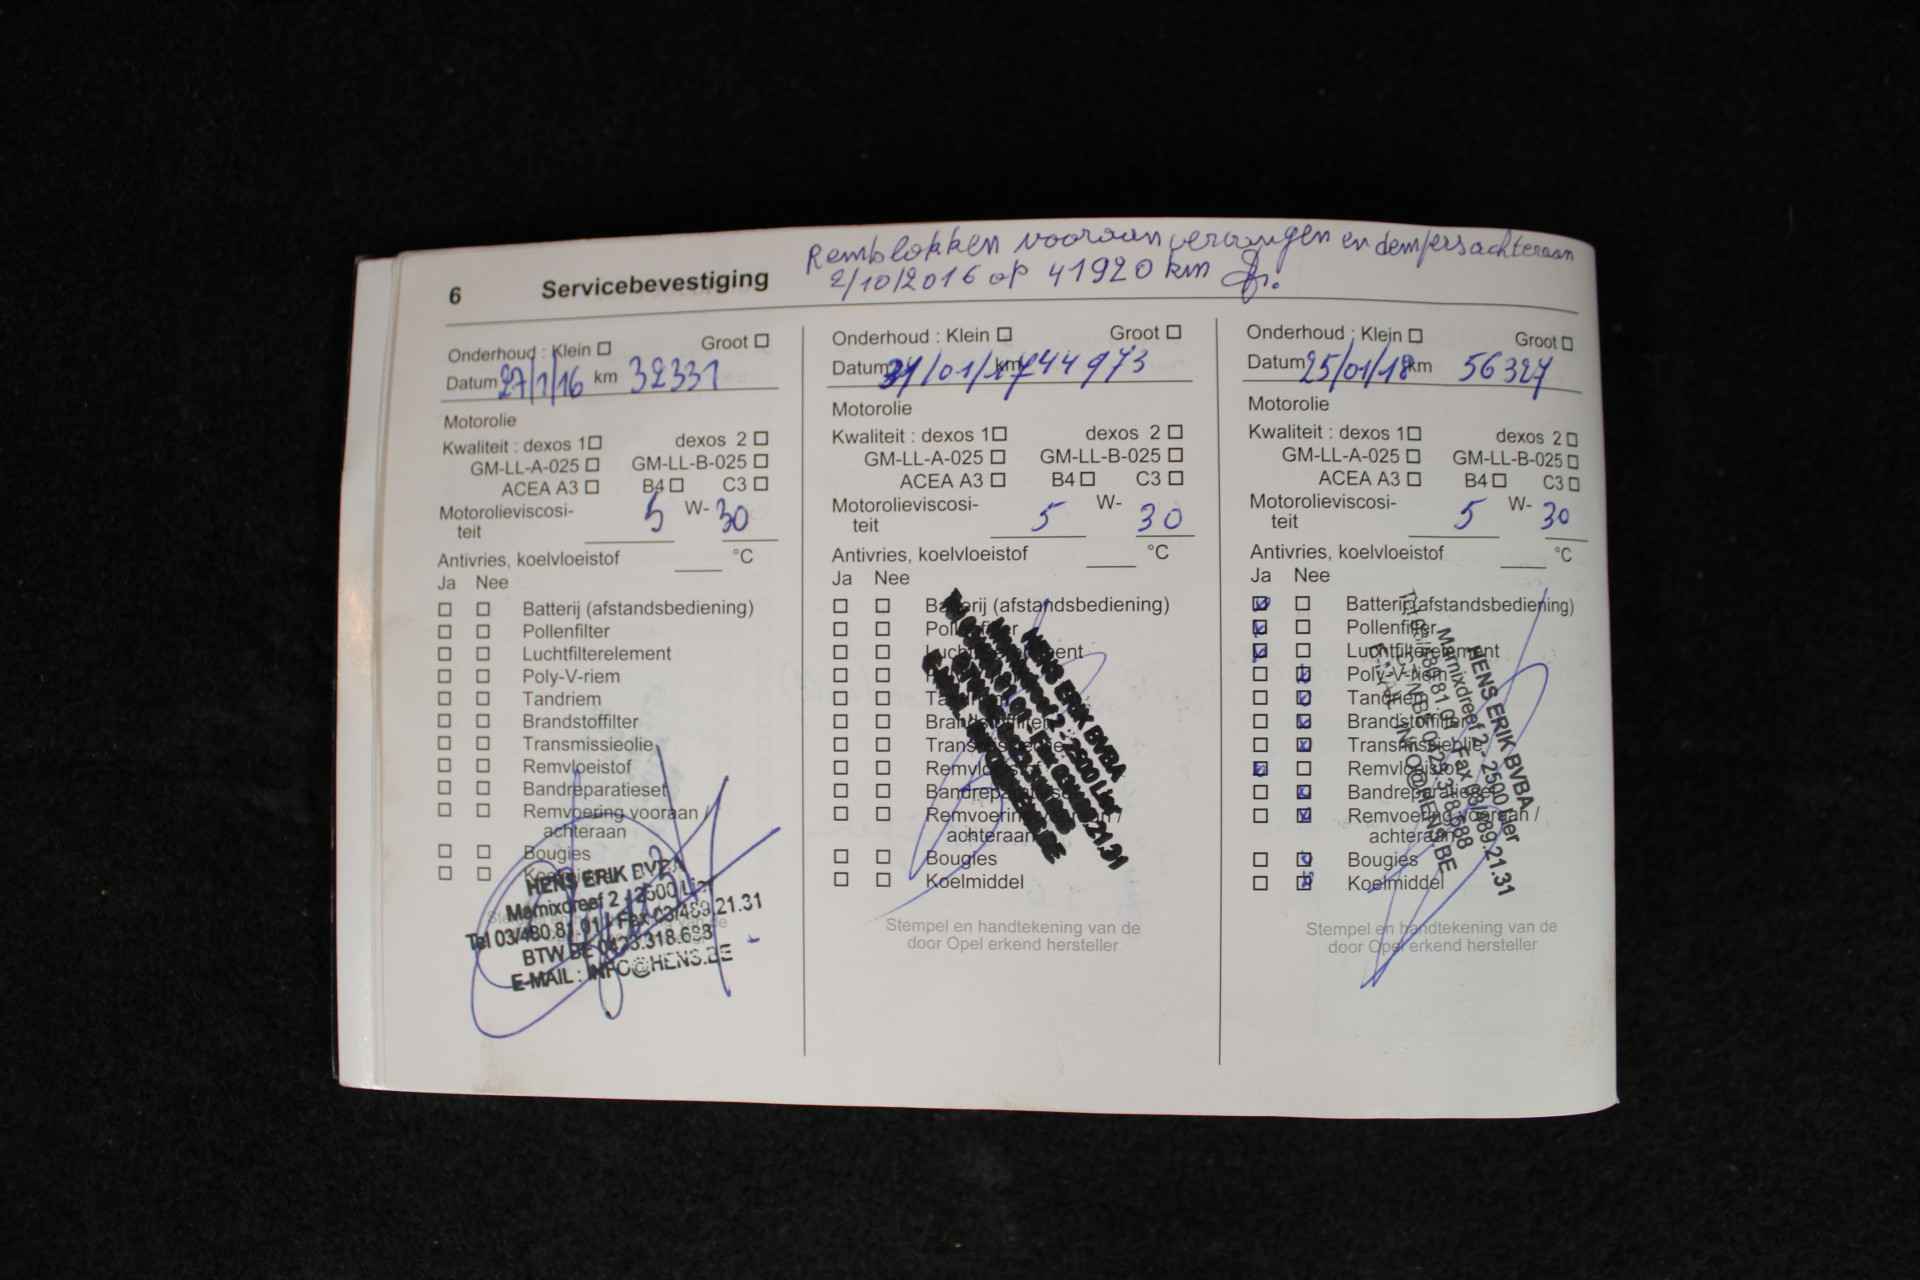 Remblokken vooraan vervangen en dempers achteraan
2/10/2016 op 41920 km
6 Servicebevestiging
Onderhoud : Klein □ Groot □
Datum 27/1/16 km 32331
Motorolie
Kwaliteit : dexos 1 □ dexos 2 □
GM-LL-A-025 □ GM-LL-B-025 □
ACEA A3 □ B4 □ C3 □
Motorolieviscosi-
teit 5 W- 30
Antivries, koelvloeistof °C
Ja Nee
□ □ Batterij (afstandsbediening)
□ □ Pollenfilter
□ □ Luchtfilterelement
□ □ Poly-V-riem
□ □ Tandriem
□ □ Brandstoffilter
□ □ Transmissieolie
□ □ Remvloeistof
□ □ Bandreparatieset
□ □ Remvoering vooraan /
achteraan
□ □ Bougies
□ □
HENS ERIK BVBA
Marnixdreef 2 - 2500 Lier
Tel 03/480.81.01 / Fax 03/489.21.31
BTW BE
E-MAIL : INFO@HENS.BE
Onderhoud : Klein □ Groot □
Datum /01/17 km 44973
Motorolie
Kwaliteit : dexos 1 □ dexos 2 □
GM-LL-A-025 □ GM-LL-B-025 □
ACEA A3 □ B4 □ C3 □
Motorolieviscosi-
teit 5 W- 30
Antivries, koelvloeistof °C
Ja Nee
□ □ Batterij (afstandsbediening)
□ □ Pollenfilter
□ □ Luchtfilterelement
□ □
□ □ Tandriem
□ □ Brandstoffilter
□ □ Transmissieolie
□ □ Remvloeistof
□ □ Bandreparatieset
□ □ Remvoering vooraan /
achteraan
□ □ Bougies
□ □ Koelmiddel
HENS ERIK BVBA
Marnixdreef 2 - 2500 Lier
Stempel en handtekening van de
door Opel erkend hersteller
Onderhoud : Klein □ Groot □
Datum 25/01/18 km 56327
Motorolie
Kwaliteit : dexos 1 □ dexos 2 □
GM-LL-A-025 □ GM-LL-B-025 □
ACEA A3 □ B4 □ C3 □
Motorolieviscosi-
teit 5 W- 30
Antivries, koelvloeistof °C
Ja Nee
☑ □ Batterij (afstandsbediening)
☑ □ Pollenfilter
☑ □ Luchtfilterelement
□ ☑ Poly-V-riem
□ ☑ Tandriem
□ ☑ Brandstoffilter
□ ☑ Transmissieolie
☑ □ Remvloeistof
□ ☑ Bandreparatieset
□ ☑ Remvoering vooraan /
achteraan
□ ☑ Bougies
□ ☑ Koelmiddel
HENS ERIK BVBA
Marnixdreef 2 - 2500 Lier
Fax 03/489.21.31
E-MAIL : INFO@HENS.BE
Stempel en handtekening van de
door Opel erkend hersteller